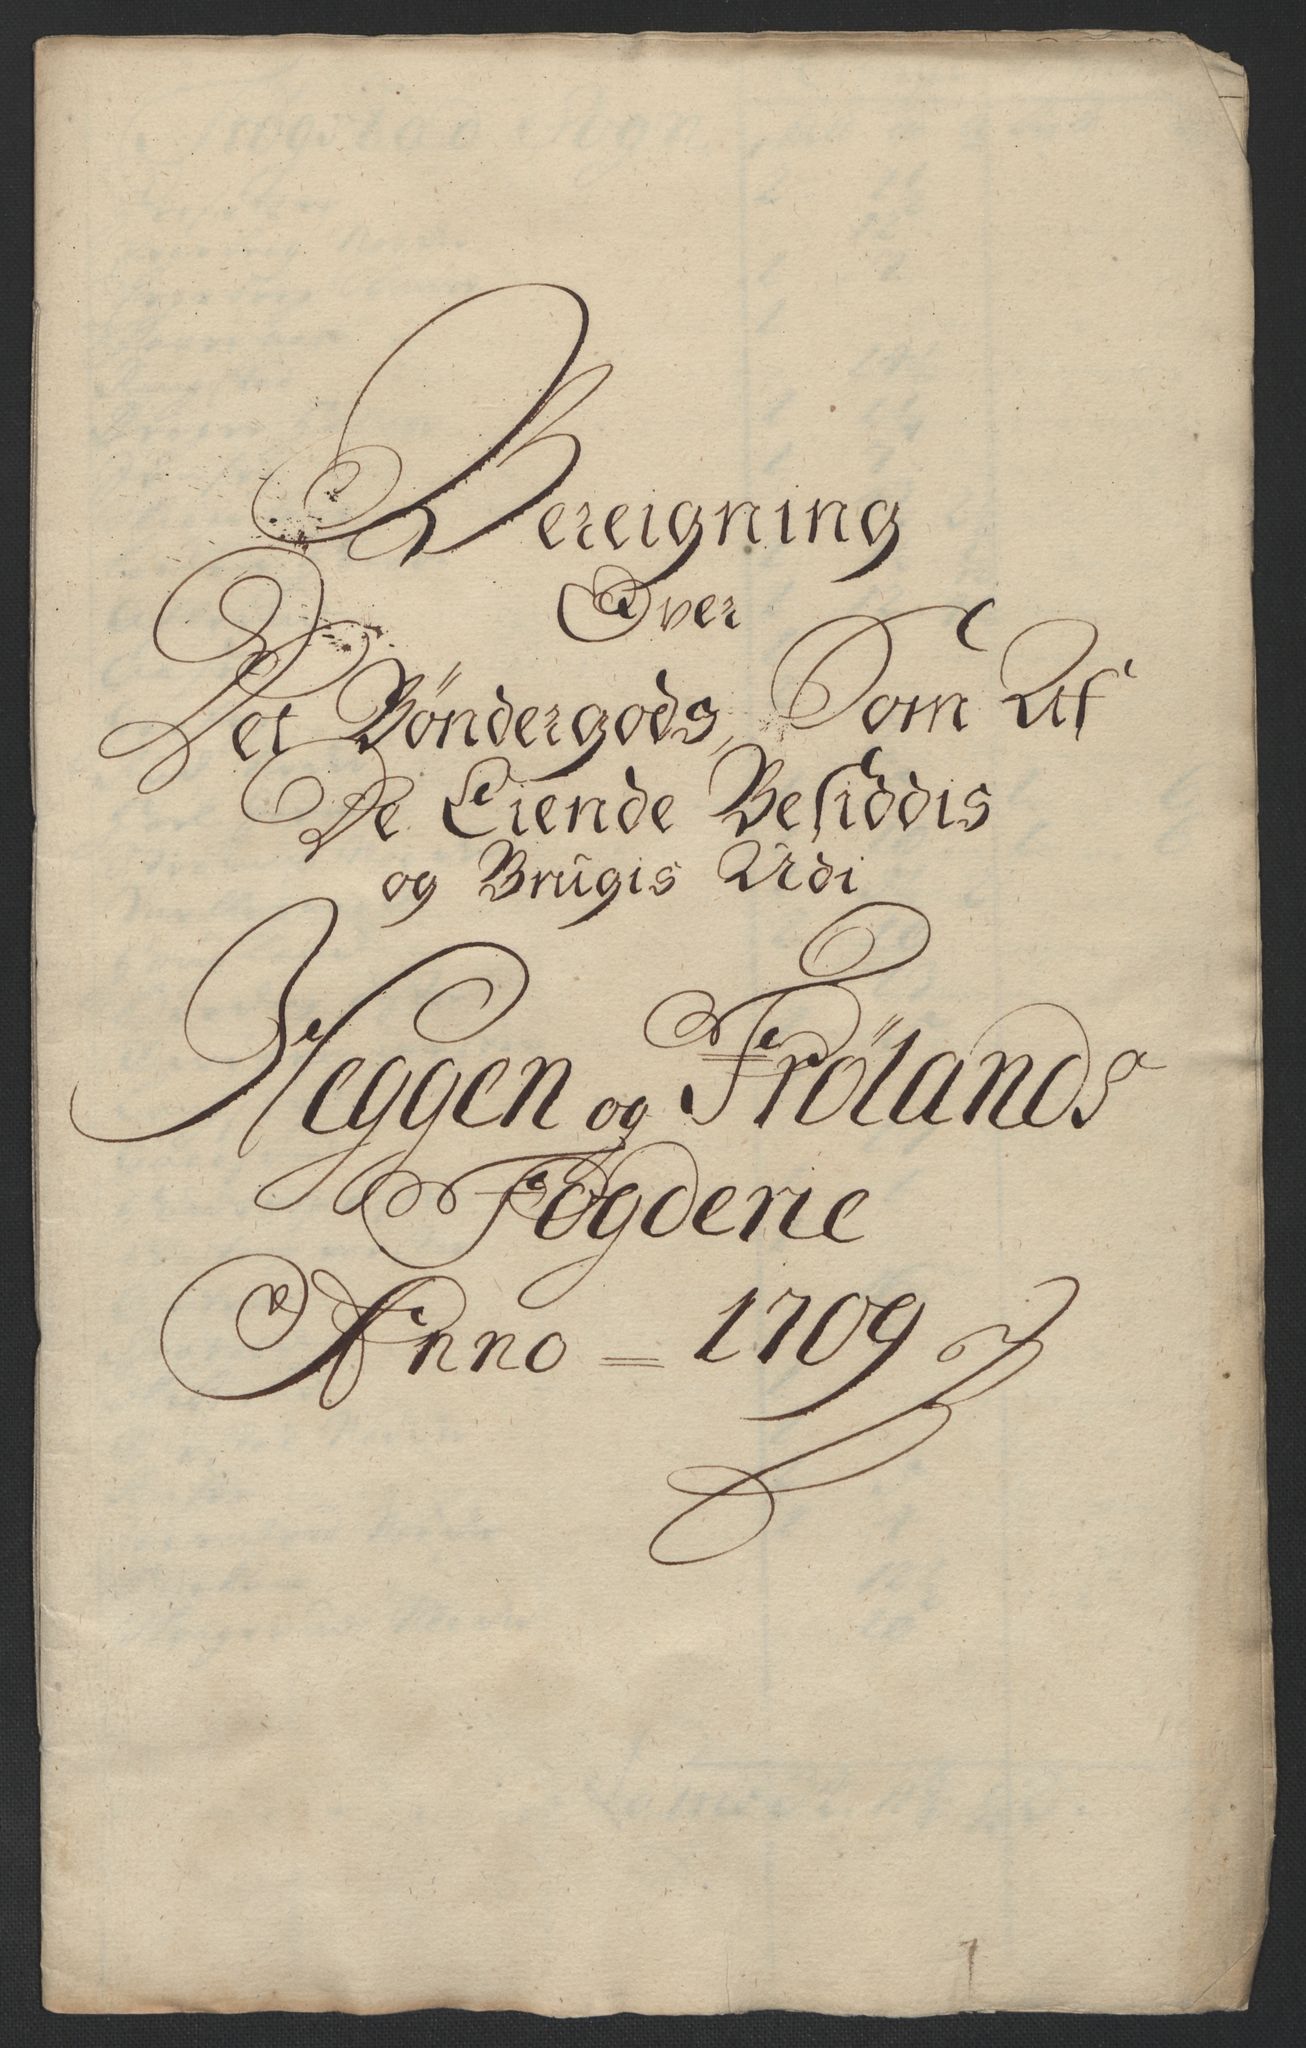 Bereigning
Over
Det Bøndergods, Som Af
De Eiende Besiddis
og Brugis Udi
Heggen og Frølands
Fogderie
Anno = 1709